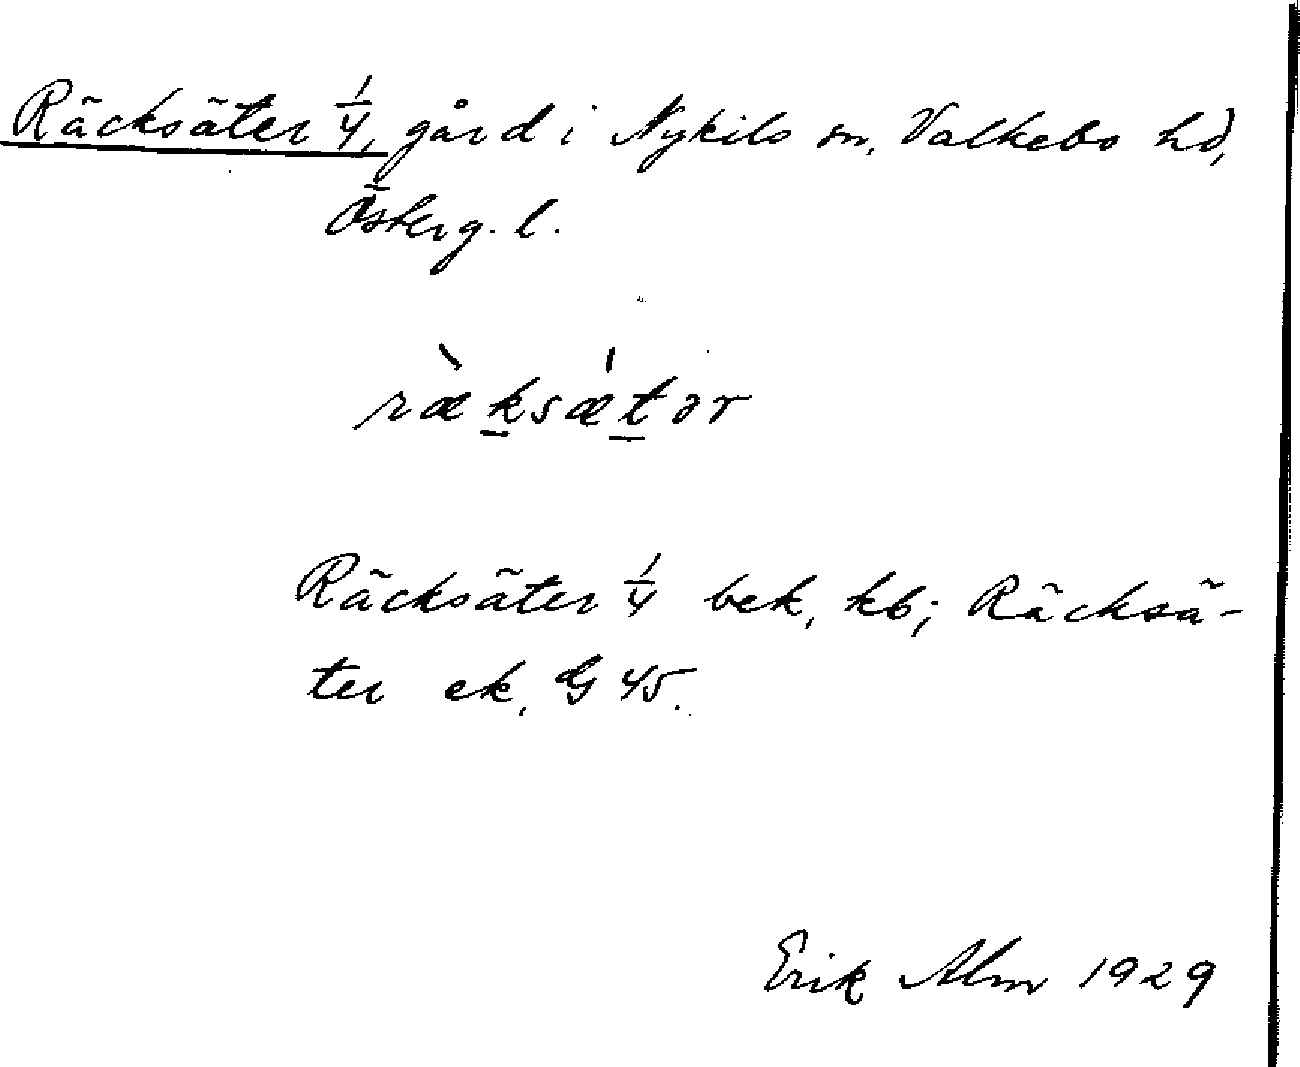 Räcksäter 1/4, gård i Nykils sn, Valkebo hd,
Österg. l.
ræ̀ksæ̍tər
Räcksäter 1/4 bek. kb; Räcksä-
ter ek. G 45.
Erik Alm 1929